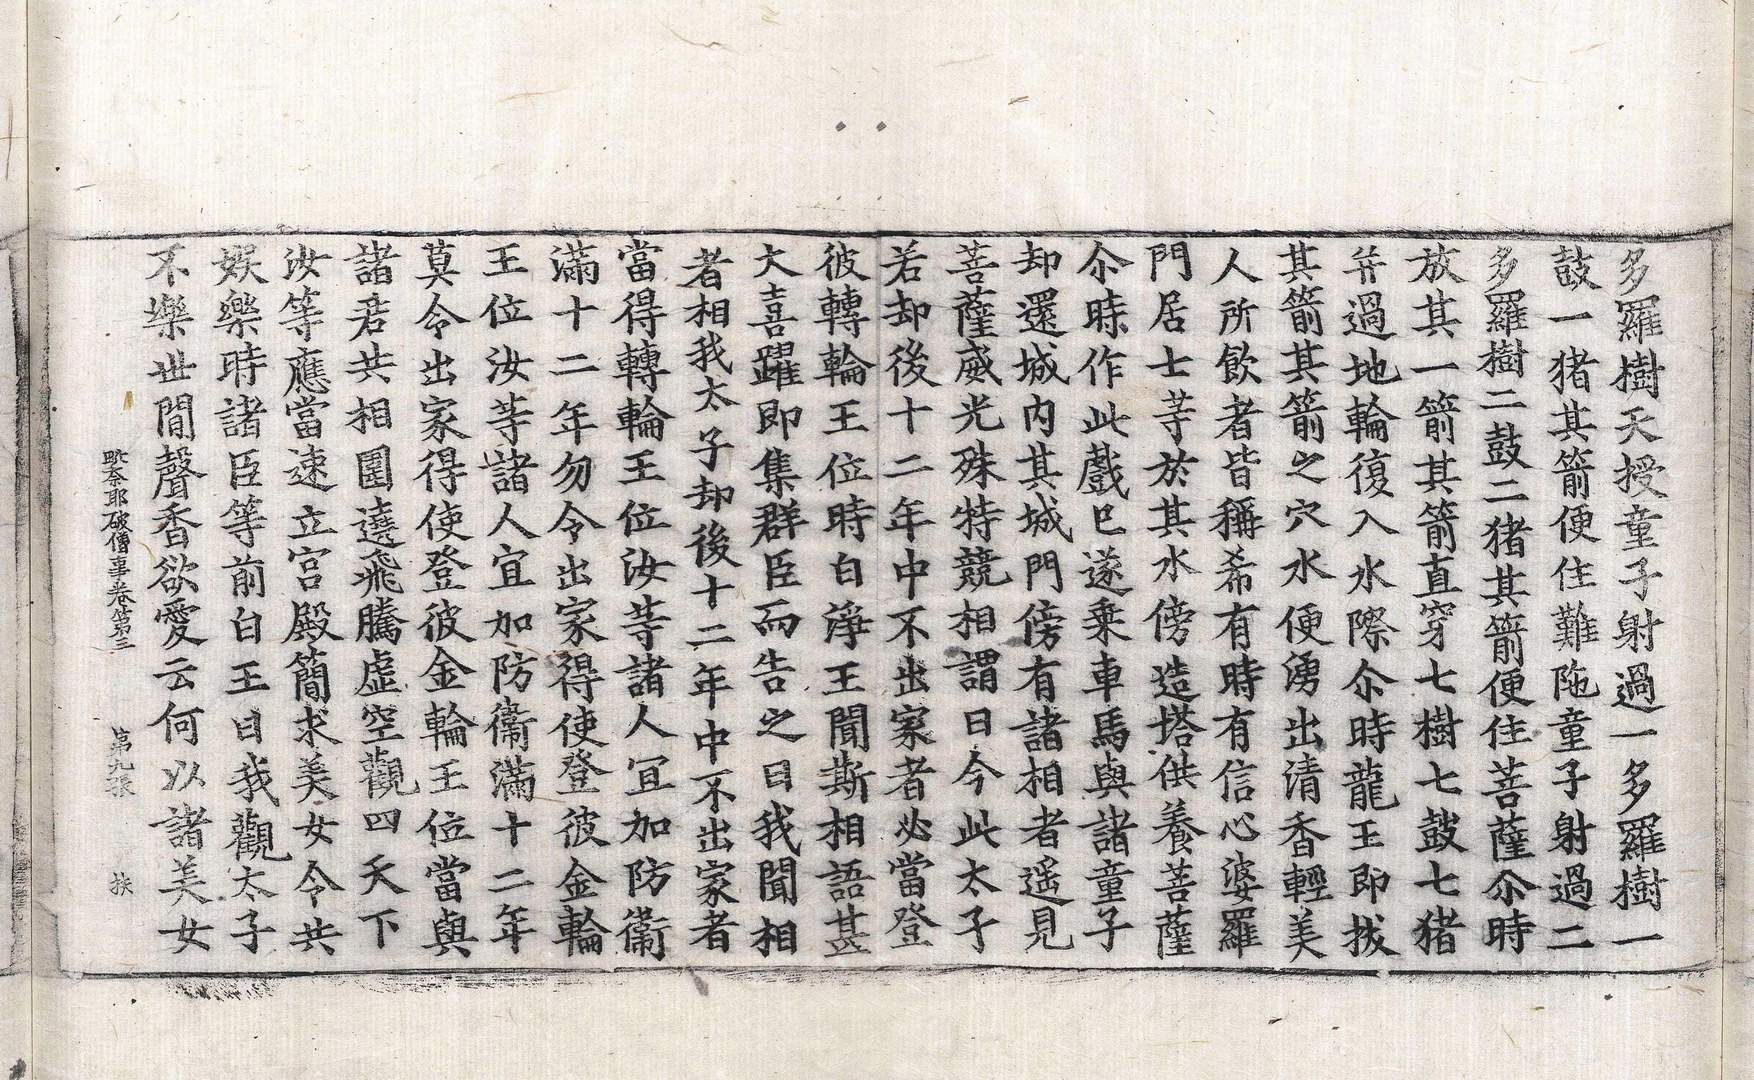 多羅樹天授童子射過一多羅樹一
鼓一猪其箭便住難陁童子射過二
多羅樹二鼓二猪其箭便住菩薩尒時
放其一箭其箭直穿七樹七鼓七猪
并過地輪復入水際尒時龍王即拔
其箭其箭之穴水便湧出清香輕美
人所飲者皆稱希有時有信心婆羅
門居士等於其水傍造塔供養菩薩
尒時作此戲已遂乗車馬與諸童子
却還城内其城門傍有諸相者遥見
菩薩威光殊特競相謂曰今此太子
若却後十二年中不出家者必當登
彼轉輪王位時白淨王聞斯相語甚
大喜躍即集群臣而告之曰我聞相
者相我太子却後十二年中不出家者
當得轉輪王位汝等諸人冝加防衞
滿十二年勿令出家得使登彼金輪
王位汝等諸人宜加防衞滿十二年
莫令出家得使登彼金輪王位當與
諸君共相圍遶飛騰虚空觀四天下
汝等應當速立宫殿簡求美女令共
娱樂時諸臣等前白王曰我觀太子
不樂世間聲香欲愛云何以諸美女
毗奈耶破僧事卷第三 第九張 扶